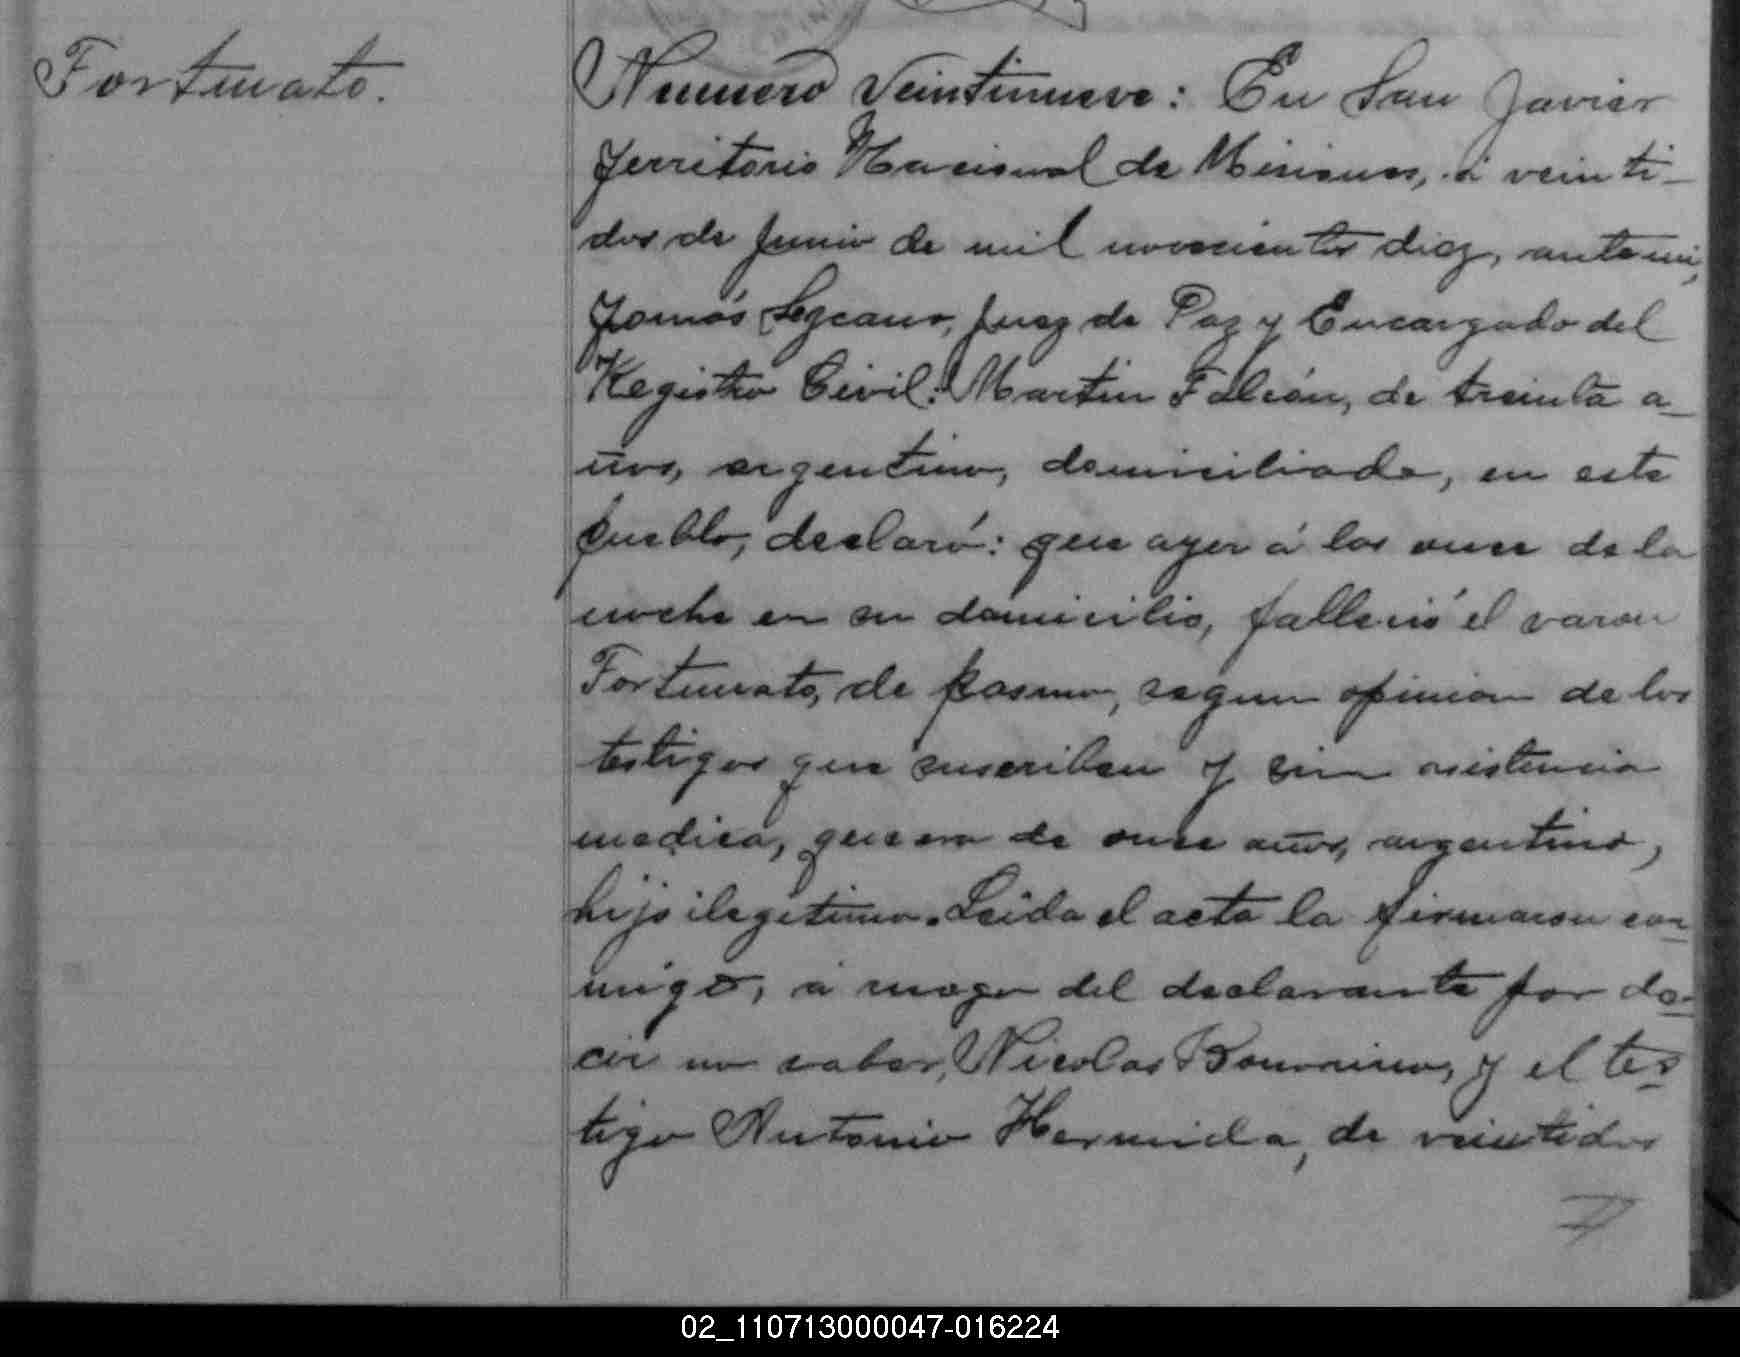 Fortunato.
Numero Veintinueve: En San Javier
Territorio Nacional de Misiones, á veinti-
dos de Junio de mil novecientos diez, ante mi,
Tomás Lezcano, Juez de Paz y Encargado del
Registro Civil: Martin Falcón, de treinta a-
ños, argentino, domiciliado, en este
pueblo, declaró: que ayer á las once de la
noche en su domicilio, falleció el varon
Fortunato, de pasmo, segun opinion de los
testigos que suscriben y sin asistencia
medica, que era de once años, argentino,
hijo ilegitimo. Leida el acta la firmaron con-
migo, á ruego del declarante por de-
cir no saber, Nicolas y el tes-
tigo Antonio Hermida, de veintidos
02_110713000047-016224